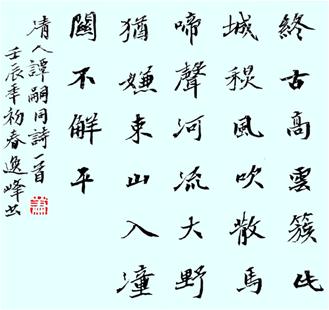 終古高雲簇此
城秋風吹散馬
啼聲河流大野
猶嫌束山入潼
關不解平
清人譚嗣同詩一首
壬辰年初春逸峰书